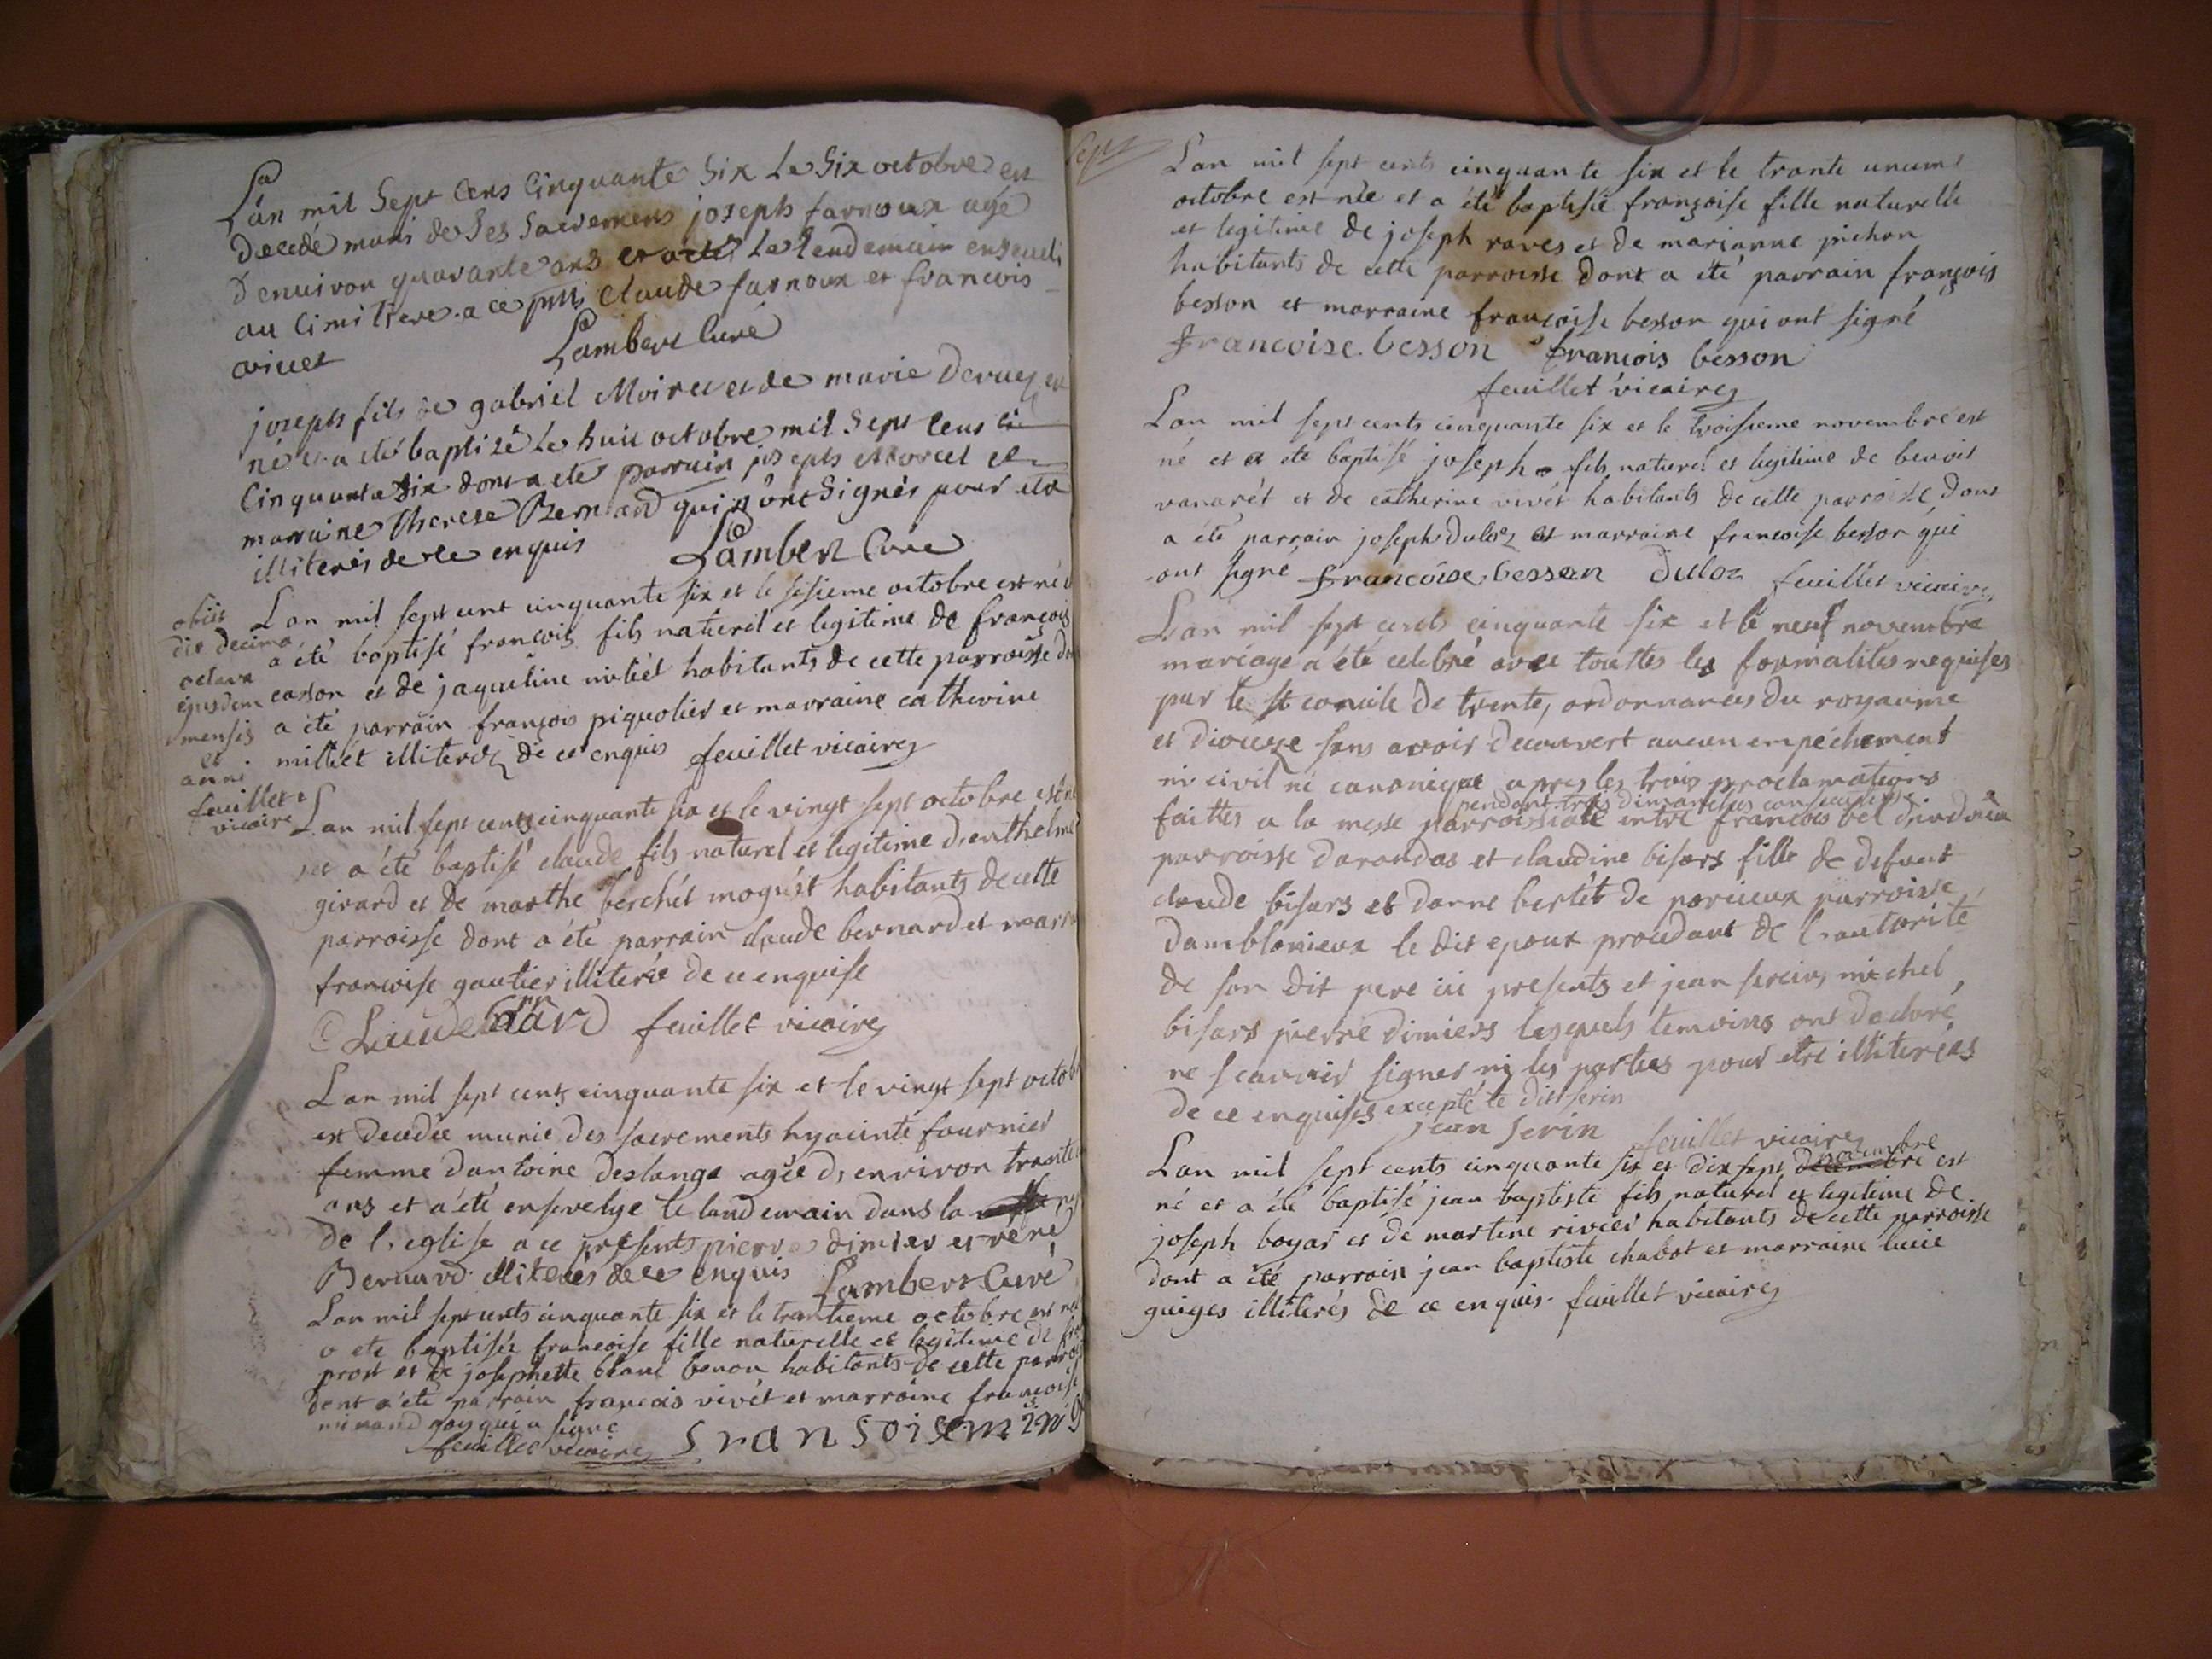 Lan mil Sept Cens Cinquante Six Le Six octobre est
Decedé muni de Ses Sacremens joseph farnoux agé
Denuiron quarante ans et a eté Le Lendemain enseueli
au Cimitiere a ce pnts Claude farnoux et francois
viuet Lambert Curé
joseph fils de gabriel Moiret et de marie Deruey est
né et a eté baptizé Le huit octobre mil Sept Cens
Cinquante Six dont a eté parrain joseph Morcel et
marraine Therese Bernard qui n'ont Signés pour etre
illiterés de ce enquis Lambert Cure
obiit
die decima
octava
ejusdem
mensis
et
anni
feuillet
vicaire
Lan mil sept cent cinquante six et le sisieme octobre est né
a été baptisé francois fils naturel et legitime de francois
casson et de jaqueline miliét habitants de cette parroisse
a été parrain françois piquolier et marraine catherine
milliét illiterés de ce enquis feuillet vicaire
Lan mil sept cents cinquante six et le vingt sept octobre est
et a été baptisé claude fils naturel et legitime d'enthelme
girard et de marthe berchét moguét habitants de cette
parroisse dont a été parrain claude bernard et
francoise gautier illiterée de ce enquise
feuillet vicaire
Lan mil sept cents cinquante six et le vingt sept
est decedée munie des sacrements hyacinte fournier
femme dantoine deslange agée d'environ trante
ans et a été ensevelye le landemain dans la
de l'eglise a ce presents pierre dimier et réné
Bernard illiterés de ce enquis Lambert Curé
Lan mil sept cents cinquante six et le trantieme octobre est
a eté baptisée francoise fille naturelle et legitime de
prost et de josephette blanc benon habitants de cette
dont a été parrain francois vivét et marraine francoise
qui a signé
feuillet vicaire
Lan mil sept cents cinquante six et le trante unieme
octobre est née et a été baptisée françoise fille naturelle
et legitime de joseph raves et de marianne pichon
habitants de cette parroisse dont a été parrain françois
besson et marraine françoise besson qui ont signé
francoise besson francois besson
feuillet vicaire
Lan mil sept cents cinquante six et le troisieme novembre est
né et a eté baptisé joseph fils naturel et legitime de benoit
vanarét et de catherine vivét habitants de cette parroisse dont
a été parrain joseph Duloz et marraine francoise besson qui
ont signé francoise besson Duloz feuillet vicaire
Lan mil sept cents cinquante six et le neuf novembre
mariage a été celebré avec touttes les formalités requises
par le st concile de trente, ordonnances du royaume
et dioceze sans avoir decouvert aucun empéchement
ni civil ni canonique apres les trois proclamations
pendant trois dimanches consecutifs
faittes a la messe parroissiale entre francois bel
parroisse darandas et claudine bisars fille de defunt
claude bisars et danne berlét de porcieux parroisse
damblonieux le dit epoux procedant de l'autorité
de son dit pere ici presents et jean serin, michel
bisars pierre dimiers lesquels temoins ont declaré
ne scavoir signer ni les parties pour etre illiterées
de ce enquises excepté le dit serin
jean serin feuillet vicaire
novembre
Lan mil sept cents cinquante six et dix sept decembre est
né et a été baptisé jean baptiste fils naturel et legitime de
joseph bogar et de martine rivier habitants de cette parroisse
dont a été parrain jean baptiste chabot et marraine lucie
guiges illiterés de ce enquis feuillet vicaire